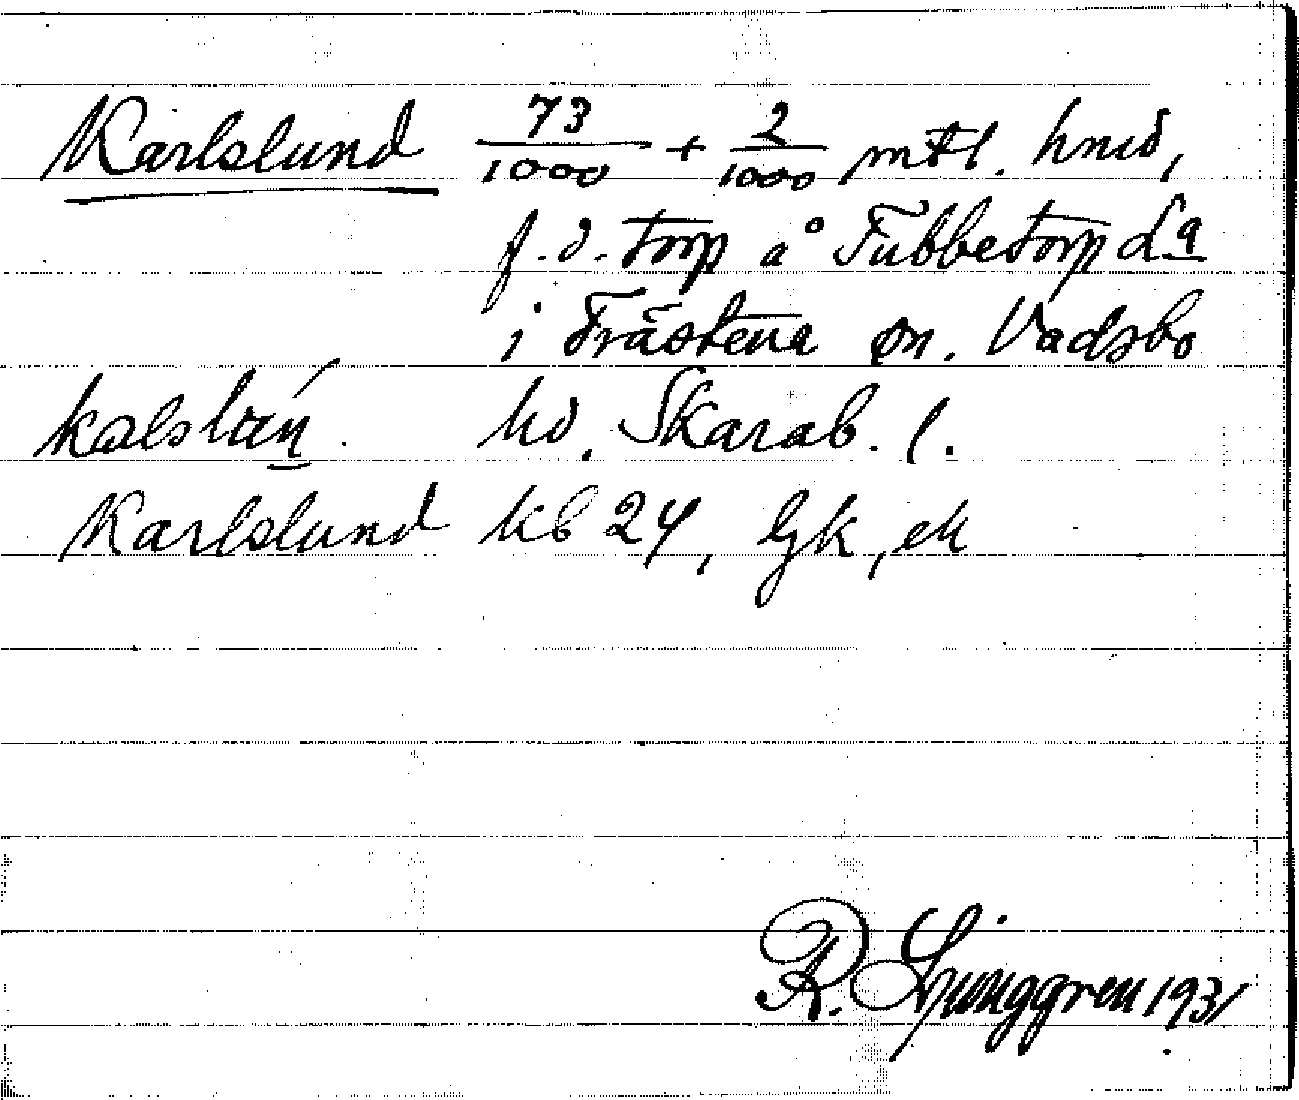 Karlslund 73/1000 + 2/1000 mtl. hmd,
f.d. torp å Tubbetorp Lª
i Trästena sn. Vadsbo
kalslœń. hd. Skarab. l.
Karlslund kb 24, Gk, ek
R. Ljunggren 1931